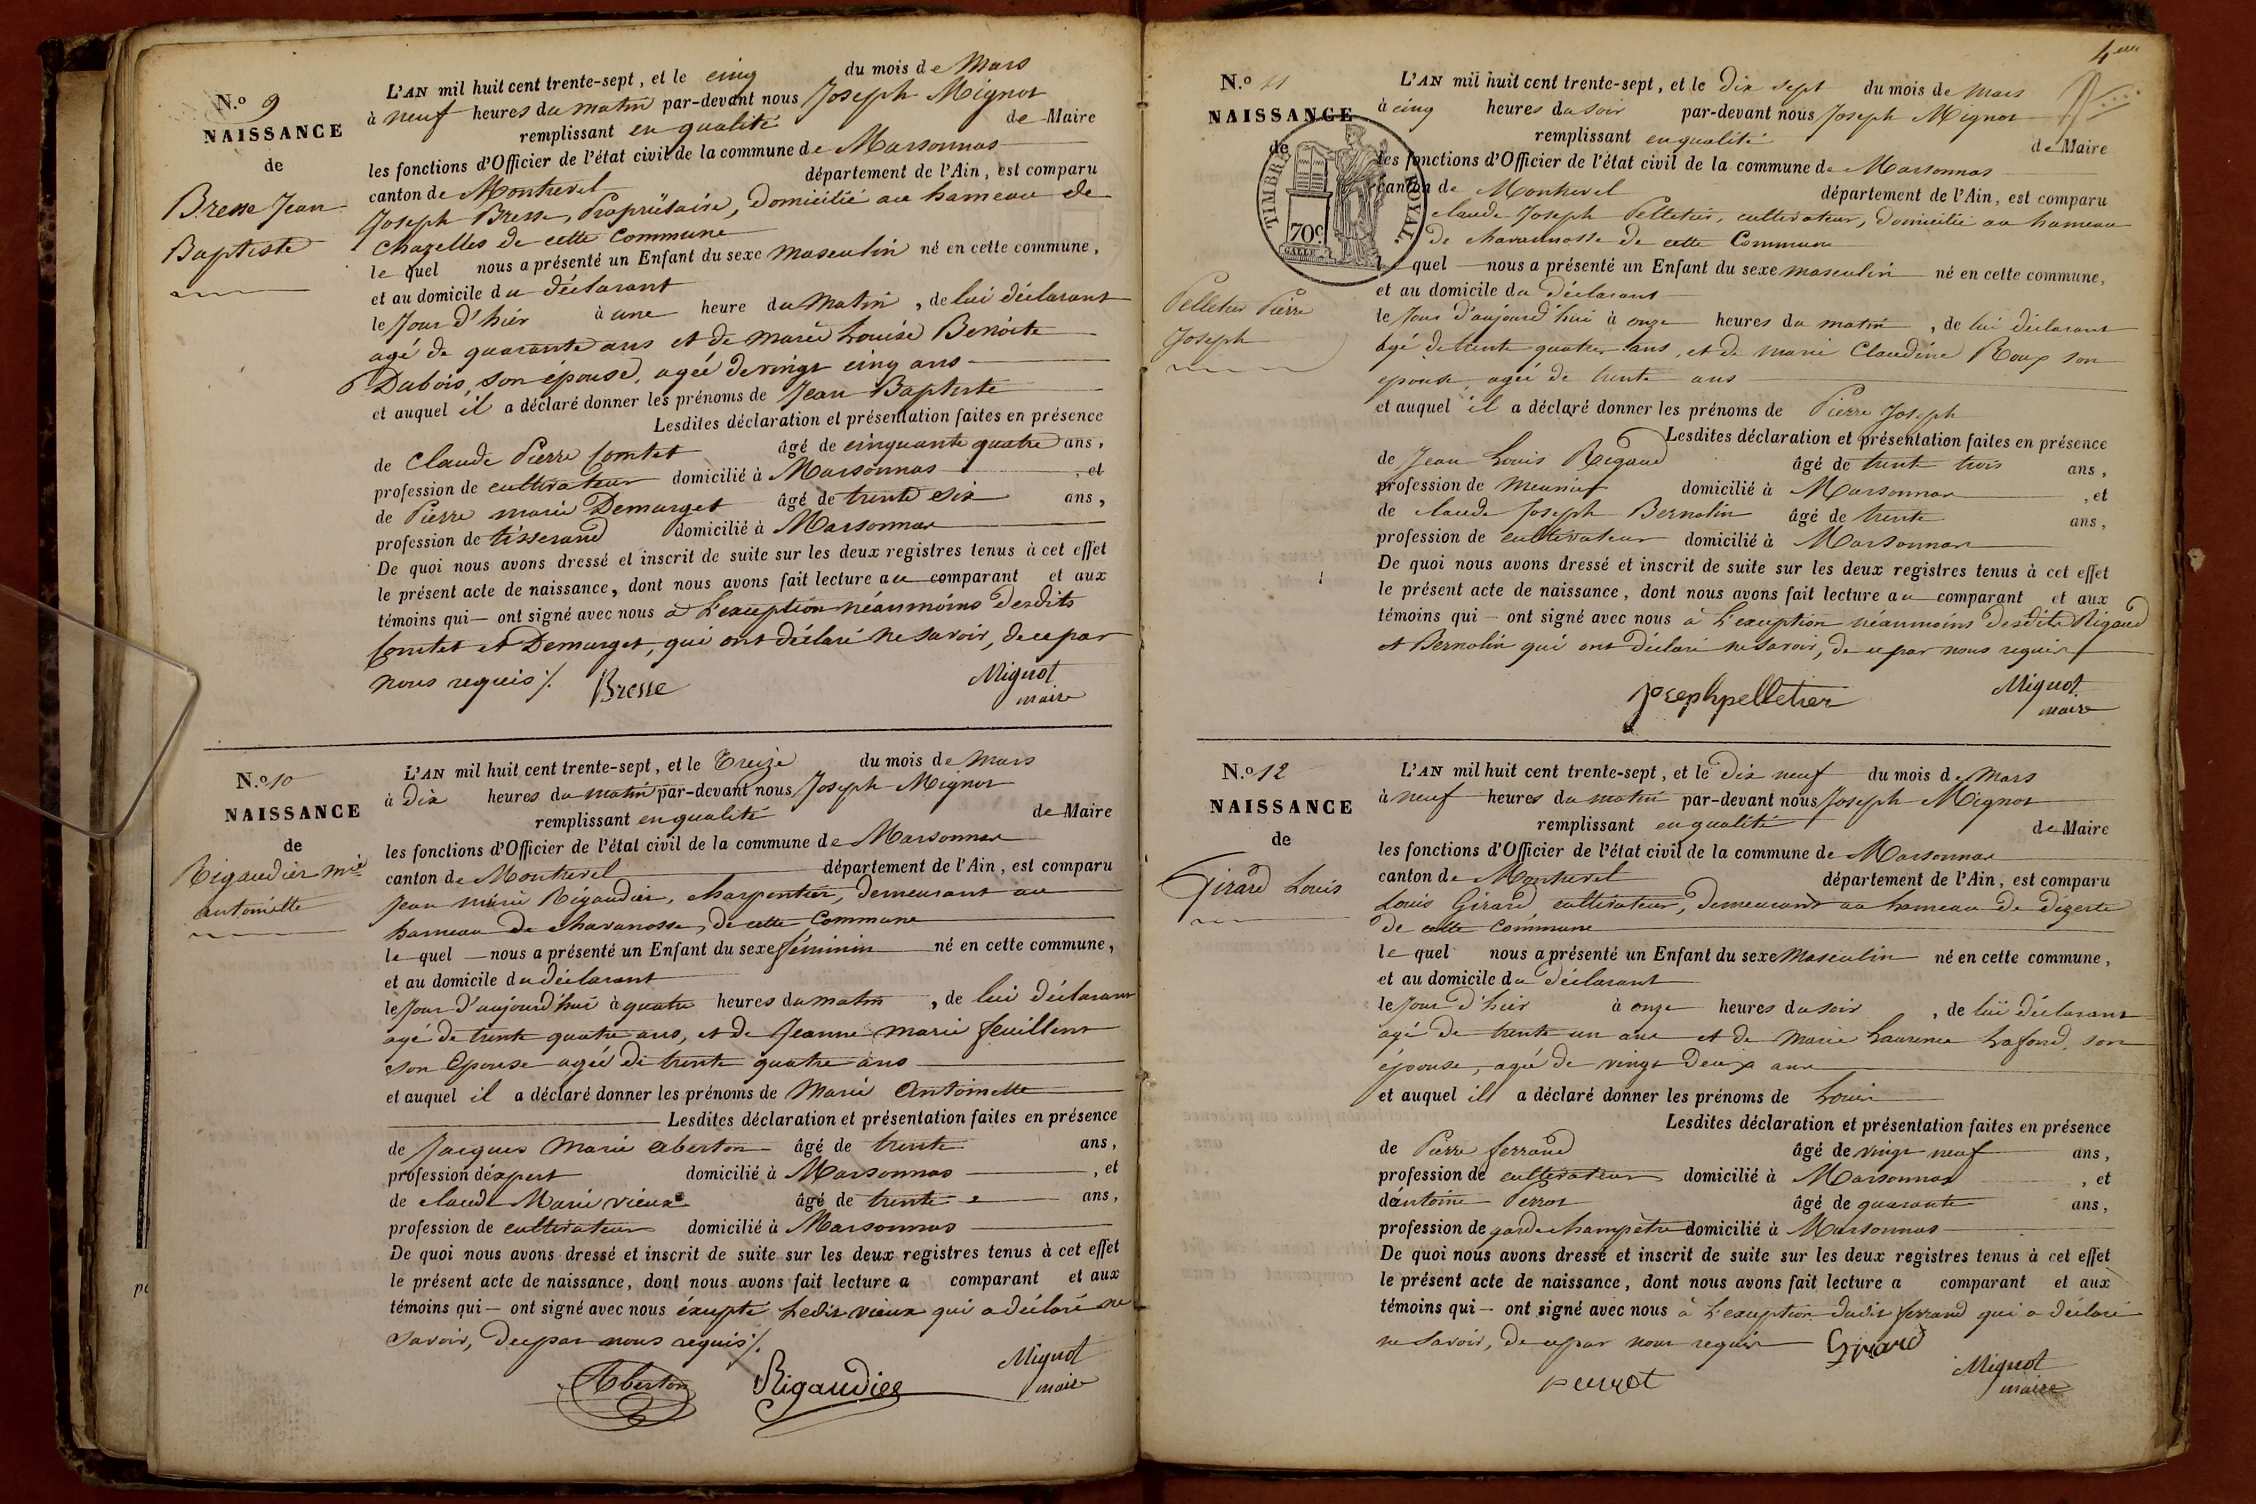 N.o 9
NAISSANCE
de
Bresse Jean
Baptiste
L'AN mil huit cent trente-sept, et le cinq du mois de Mars
à neuf heures du matin par-devant nous Joseph Mignot
remplissant en qualité de Maire
les fonctions d'Officier de l'état civil de la commune de Marsonnas
canton de Montrevel département de l'Ain, est comparu
Joseph Bresse, Propriétaire, domicilié au hameau de
Chazelles de cette Commune
le quel nous a présenté un Enfant du sexe masculin né en cette commune,
et au domicile du déclarant
le Jour d'hiér à une heure du Matin, de lui déclarant
agé de quarante ans et de marie Louise Benoite
Dubois, son épouse, agée de vingt cinq ans
et auquel il a déclaré donner les prénoms de Jean Baptiste
Lesdites déclaration et présentation faites en présence
de Claude Pierre Comtet âgé de cinquante quatre ans,
profession de cultivateur domicilié à Marsonnas, et
de Pierre marie Demurget âgé de trente six ans,
profession de tisserand domicilié à Marsonnas
De quoi nous avons dressé et inscrit de suite sur les deux registres tenus à cet effet
le présent acte de naissance, dont nous avons fait lecture au comparant et aux
témoins qui ont signé avec nous à L'exception néanmoins desdits
Comtet et Demurget, qui ont déclaré ne savoir, de ce par
nous requis ⁒
Bresse
Mignot
maire
N.o 10
NAISSANCE
de
Rigaudier mie
antoinette
L'AN mil huit cent trente-sept, et le Treize du mois de Mars
à dix heures du matin par-devant nous Joseph Mignot
remplissant en qualité de Maire
les fonctions d'Officier de l'état civil de la commune de Marsonnas
canton de Montrevel département de l'Ain, est comparu
Jean Marie Rigaudier, charpentier, demeurant au
hameau de chavanosse, de cette Commune
le quel nous a présenté un Enfant du sexe féminin né en cette commune,
et au domicile du déclarant
le Jour d'aujourd'hui à quatre heures du matin, de lui déclarant
agé de trente quatre ans, et de Jeanne marie feuillent
son Epouse agée de trente quatre ans
et auquel il a déclaré donner les prénoms de Marie Antoinette
Lesdites déclaration et présentation faites en présence
de Jacques Marie aberton âgé de trente ans,
profession d'expert domicilié à Marsonnas, et
de claude Marie vieux âgé de trente ans,
profession de cultivateur domicilié à Marsonnas
De quoi nous avons dressé et inscrit de suite sur les deux registres tenus à cet effet
le présent acte de naissance, dont nous avons fait lecture a comparant et aux
témoins qui ont signé avec nous éxcepté Ledit vieux qui a déclaré ne
savoir, de ce par nous requis ⁒
Aberton
Rigaudier
Mignot
maire
4eme
N.o 11
NAISSANCE
de
TIMBRE ROYAL.
70c
Pelletier Pierre
Joseph
L'AN mil huit cent trente-sept, et le dix sept du mois de Mars
à cinq heures du soir par-devant nous Joseph Mignot
remplissant en qualité de Maire
les fonctions d'Officier de l'état civil de la commune de Marsonnas
canton de Montrevel département de l'Ain, est comparu
claude Joseph Pelletier, cultivateur, domicilié au hameau
de chavannosse de cette Commune
le quel nous a présenté un Enfant du sexe masculin né en cette commune,
et au domicile du déclarant
le Jour d'aujourd'hui à onze heures du matin, de lui déclarant
agé de trente quatre ans, et de marie Claudine Roux son
epouse, agée de trente ans
et auquel il a déclaré donner les prénoms de Pierre Joseph
Lesdites déclaration et présentation faites en présence
de Jean Louis Rigaud âgé de trente trois ans,
profession de meunier domicilié à Marsonnas, et
de claude Joseph Bernolin âgé de trente ans,
profession de cultivateur domicilié à Marsonnas
De quoi nous avons dressé et inscrit de suite sur les deux registres tenus à cet effet
le présent acte de naissance, dont nous avons fait lecture au comparant et aux
témoins qui ont signé avec nous à L'exception néanmoins desdits Rigaud
et Bernolin qui ont déclaré ne savoir, de ce par nous requis
Josephpelletier
Mignot
maire
N.o 12
NAISSANCE
de
Girard Louis
L'AN mil huit cent trente-sept, et le dix neuf du mois de Mars
à neuf heures du matin par-devant nous Joseph Mignot
remplissant en qualité de Maire
les fonctions d'Officier de l'état civil de la commune de Marsonnas
canton de Montrevel département de l'Ain, est comparu
Louis Girard cultivateur, demeurant au hameau de
de cette Commune
le quel nous a présenté un Enfant du sexe Masculin né en cette commune,
et au domicile du déclarant
le Jour d'hier à onze heures du soir, de lui déclarant
agé de trente un ans et de Marie Laurence Lafond, son
épouse, agée de vingt deux ans
et auquel il a déclaré donner les prénoms de Louis
Lesdites déclaration et présentation faites en présence
de Pierre ferrand âgé de vingt neuf ans,
profession de cultivateur domicilié à Marsonnas, et
d'antoine Perrot âgé de quarante ans,
profession de garde champêtre domicilié à Marsonnas
De quoi nous avons dressé et inscrit de suite sur les deux registres tenus à cet effet
le présent acte de naissance, dont nous avons fait lecture a comparant et aux
témoins qui ont signé avec nous à L'exception dudit ferrand qui a déclaré
ne savoir, de ce par nous requis
Girard
perrot
Mignot
maire